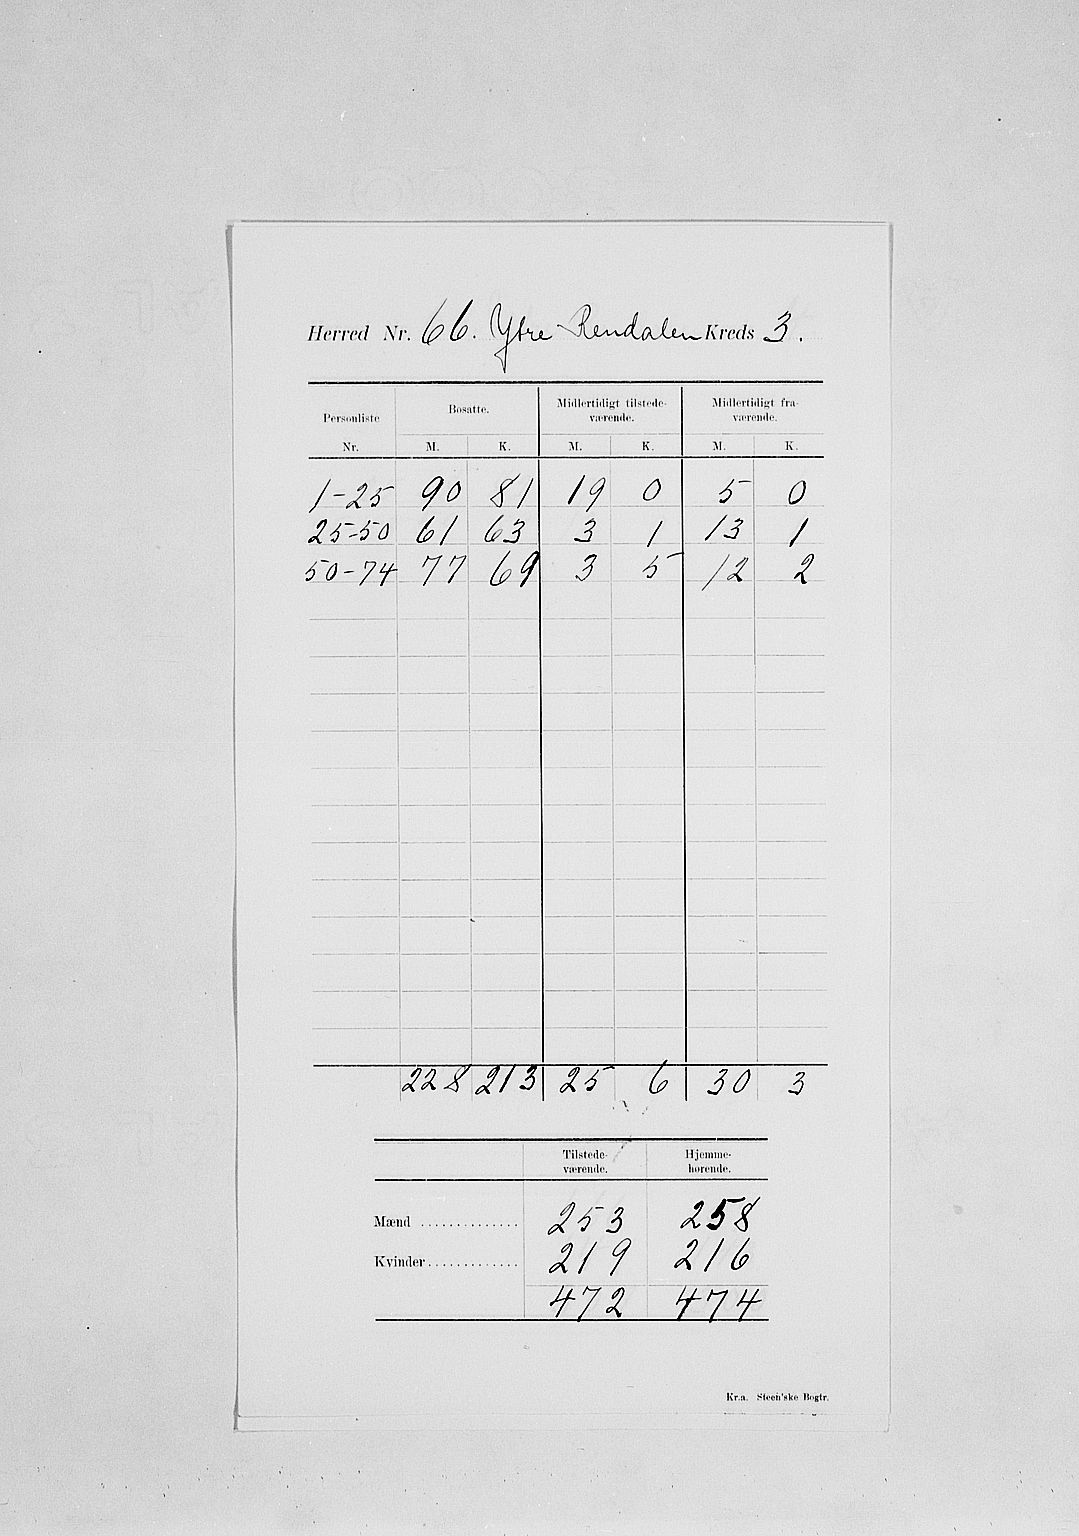 Herred Nr. 66. Ytre Rendalen Kreds 3.
Personliste Bosatte. Midlertidigt tilstede- Midlertidigt fra-
værende. værende.
Nr. M. K. M. K. M. K.
1-25 90 81 19 0 5 0
25-50 61 63 3 1 13 1
50-74 77 69 3 5 12 2
228 213 25 6 30 3
Tilstede- Hjemme-
værende. hørende.
Mænd .............. 253 258
Kvinder ............. 219 216
472 474
Kr.a. Steen'ske Bogtr.